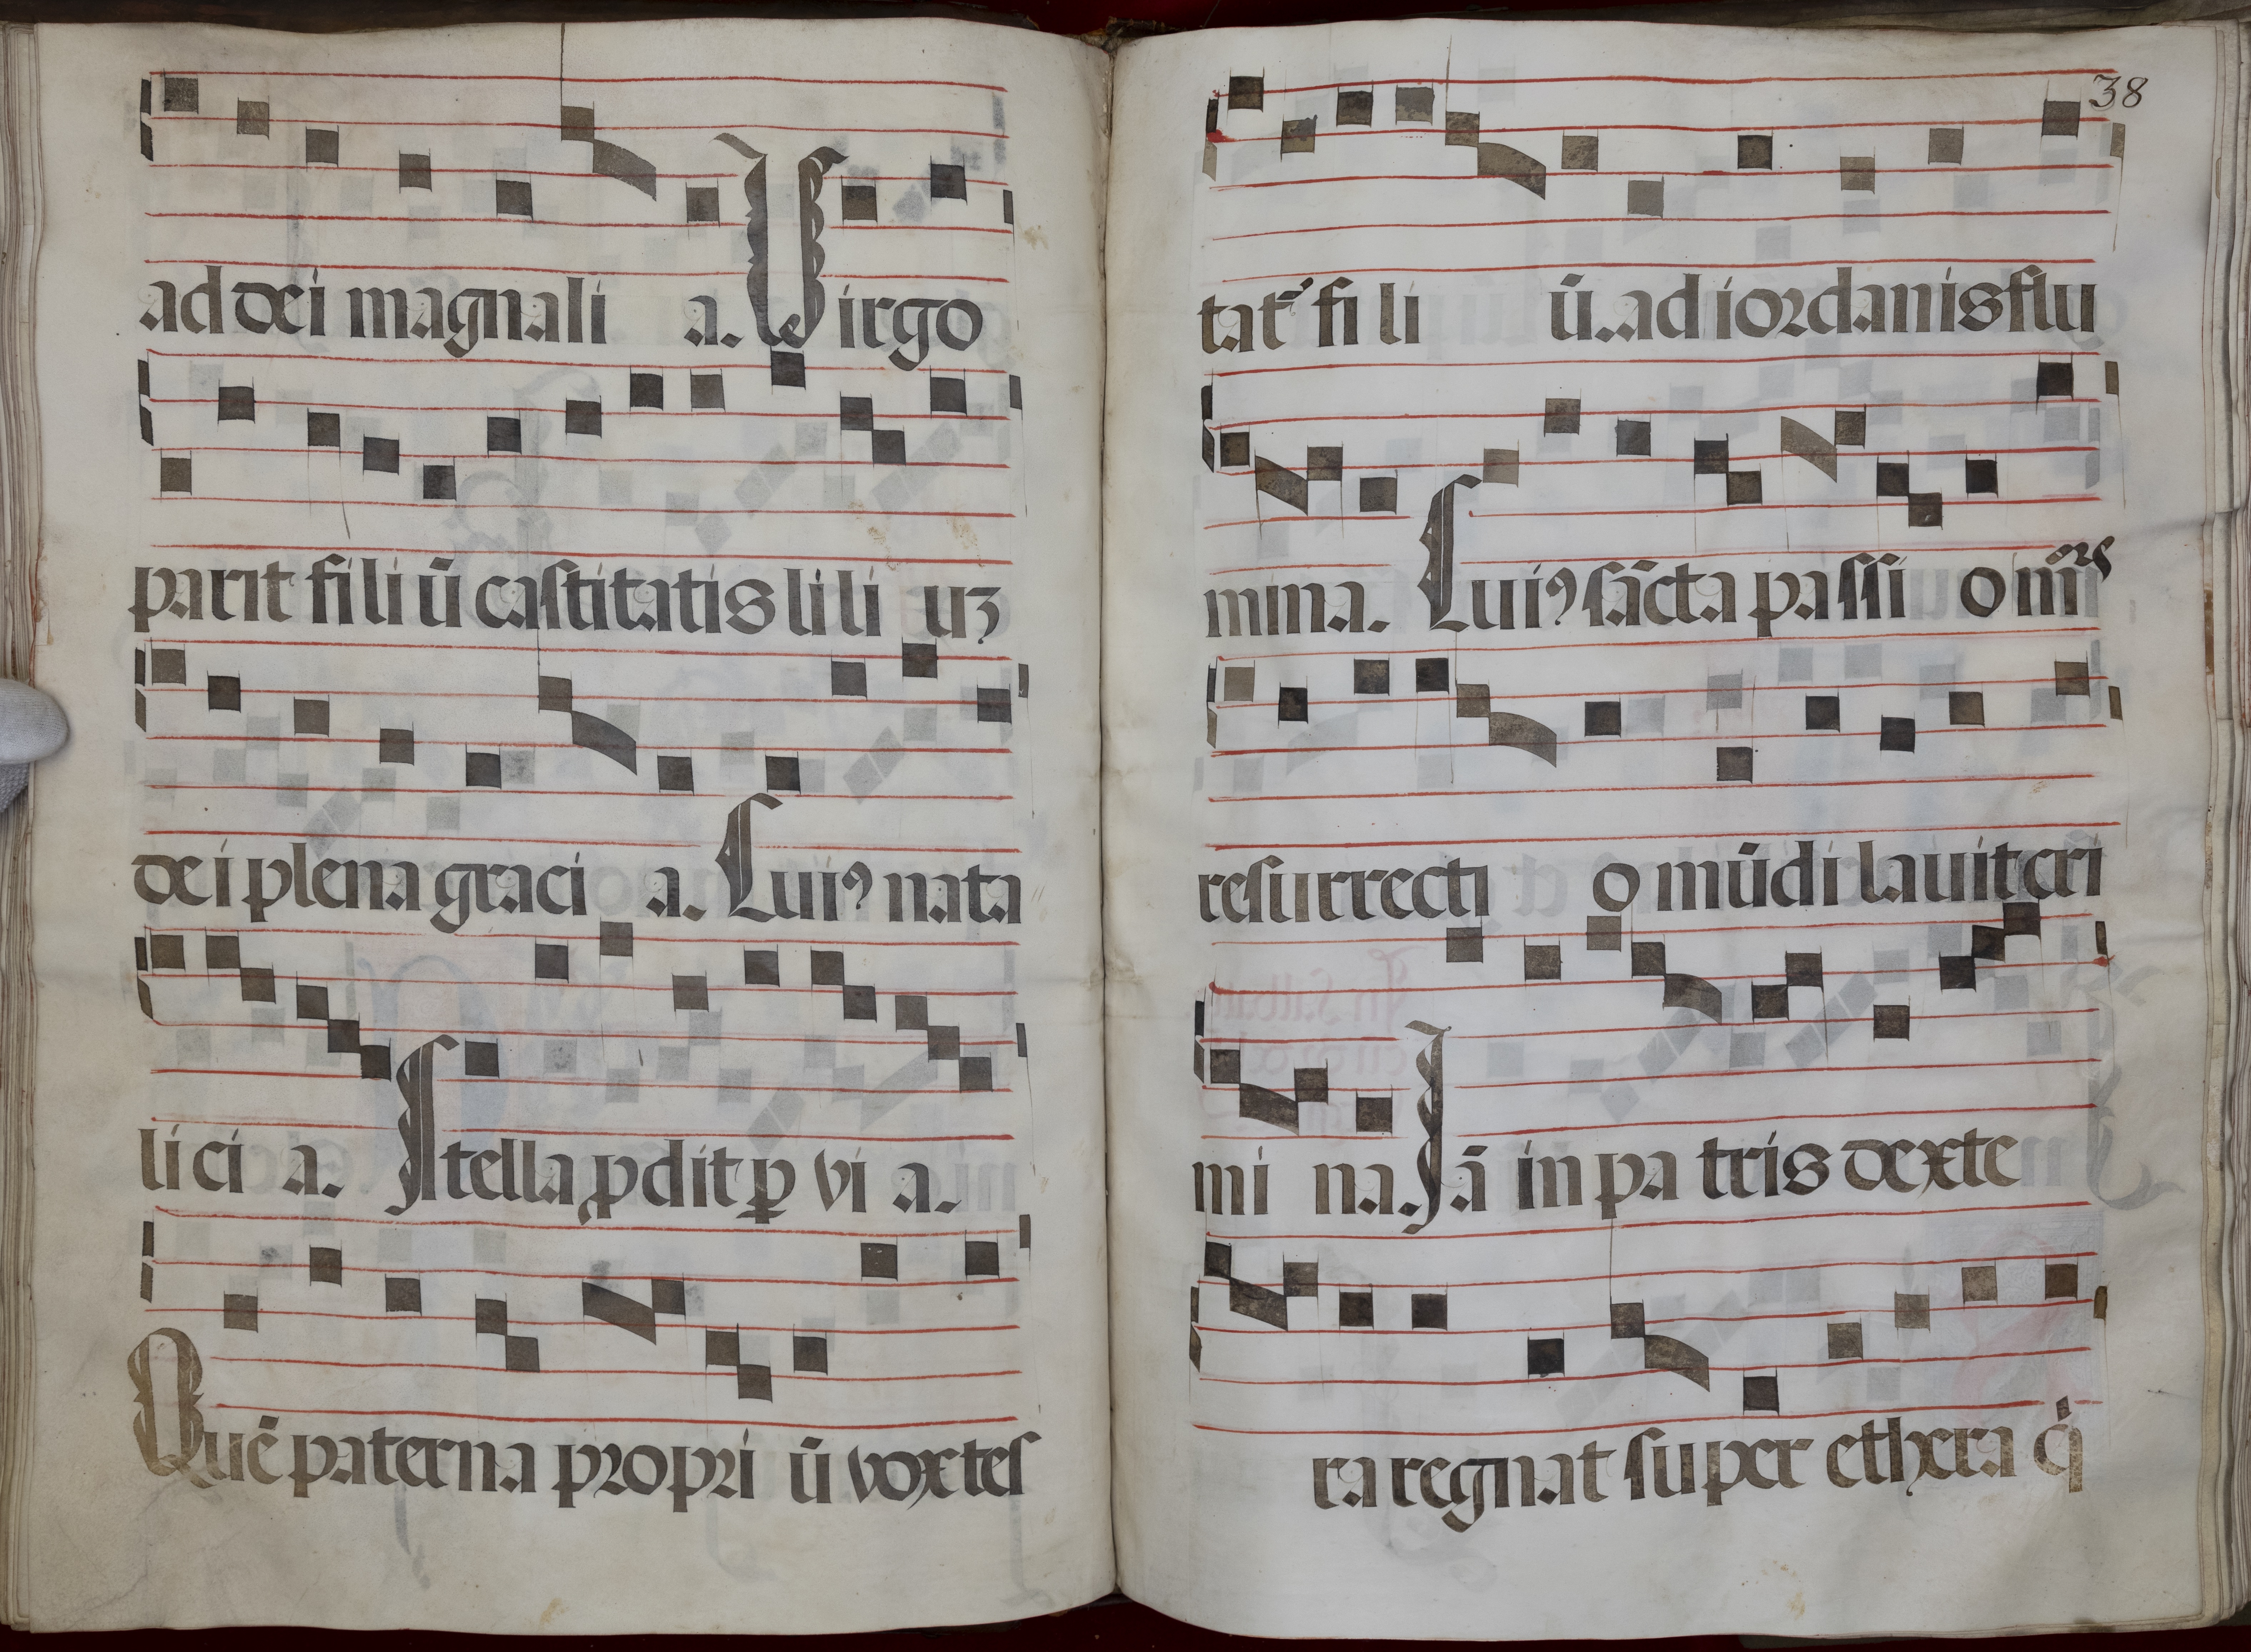 ad dei magnali a. Virgo
parit fili ū castitatis lili uꝫ
dei plena graci a. Cuiꝰ nata
lici a. Stella ꝓdit ꝑ vi a.
Quē paterna propri ū vox tes
38
tat᷑ fili ū. ad iordanis flu
mina. Cuiꝰ sācta passi o mr̄s
resurrecti o mūdi lavit cri
mi na. Iā in patris dexte
ra regnat super ethera q̇